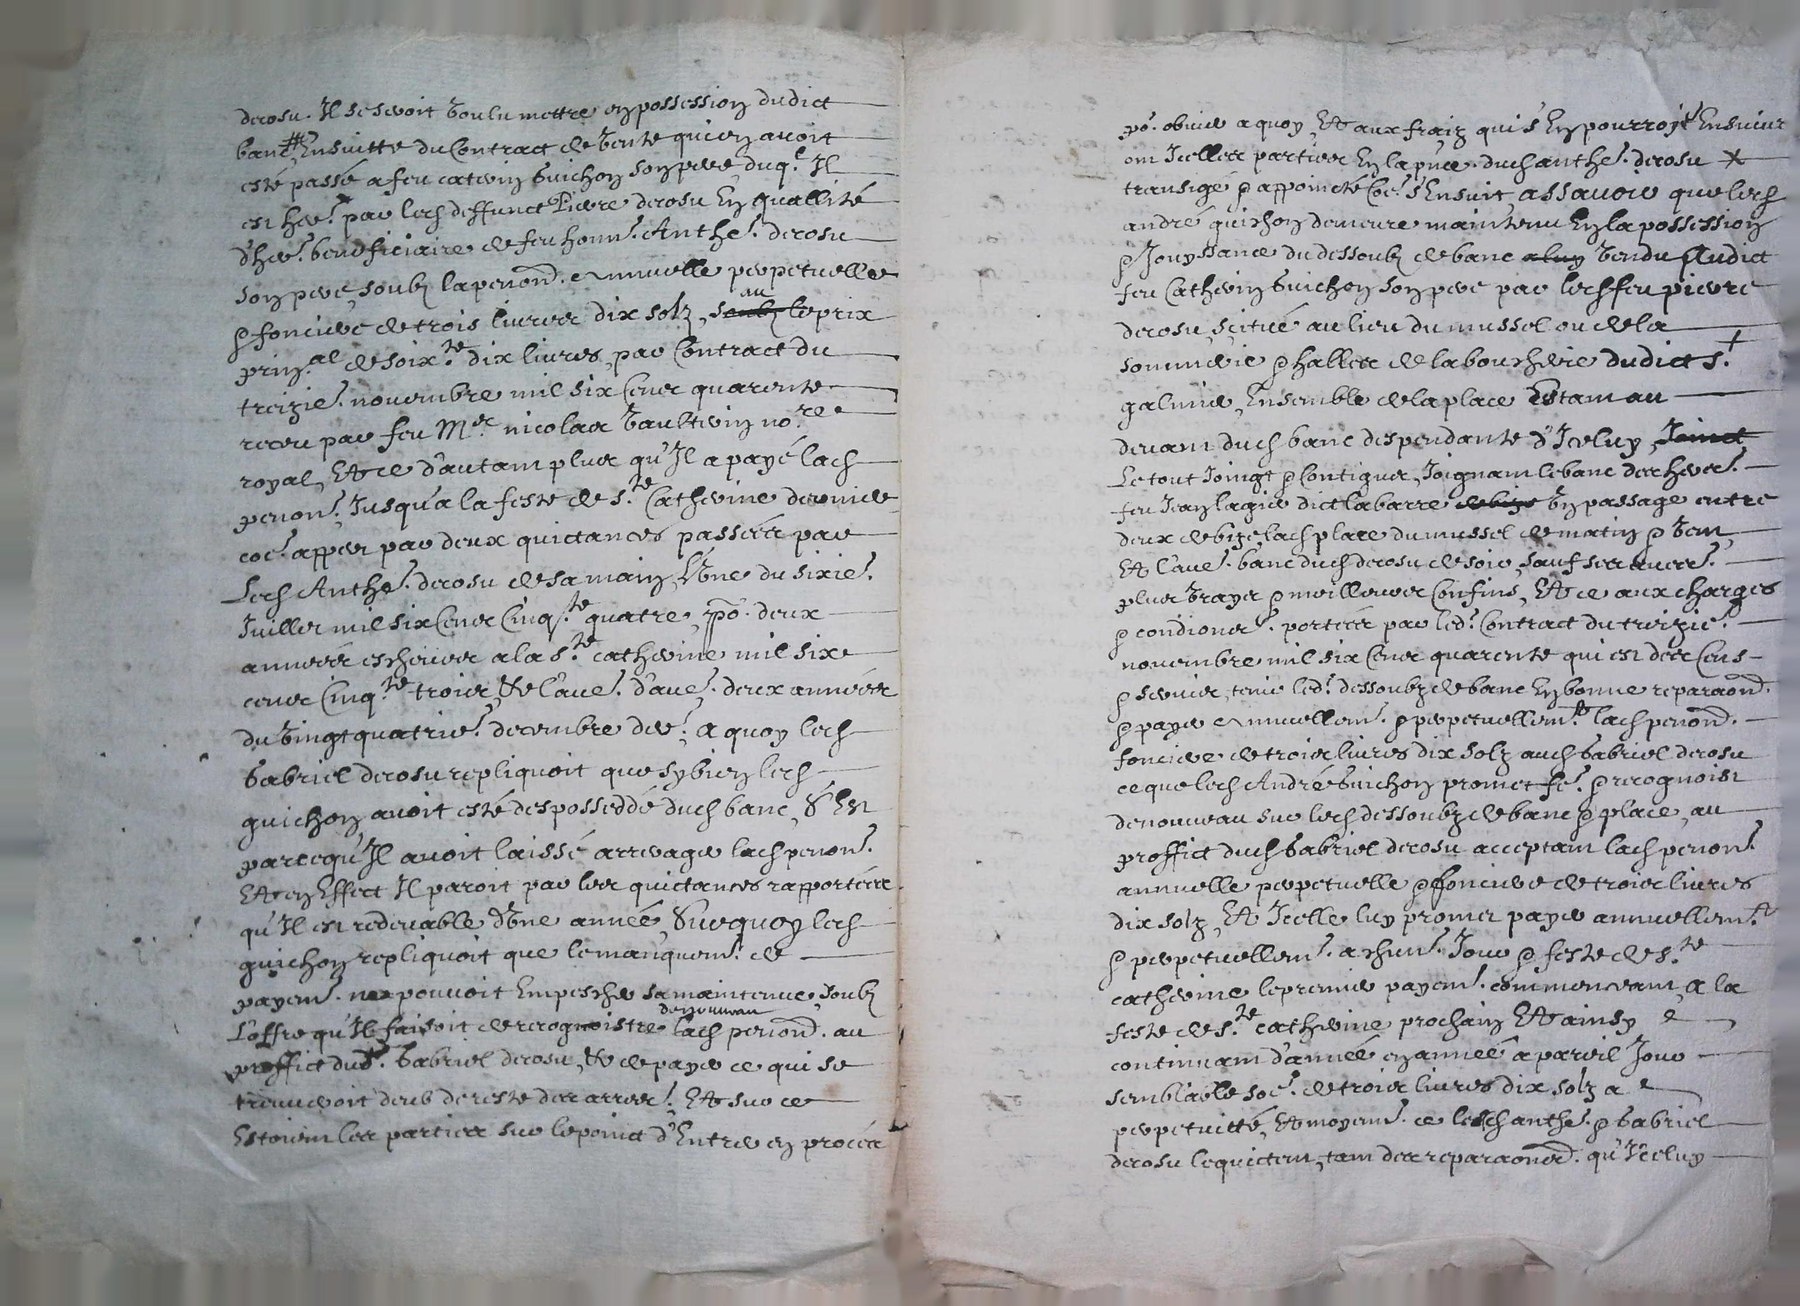 derosu. Il se seroit voulu mettre en possession dudict
banc # Ensuitte du Contract de vente qui en avoit
esté passé a feu catherin Guichon son pere, duq.l Il
est her.r par led. deffunct Pierre derosu En quallité
d'her.r beneficiaire de feu honn.e Anthe. derosu
son pere, soubz la pention annuelle perpetuelle
& fonciere de trois livres dix solz, soubz au le prix
prin.al de soix.te dix livres, par Contract du
treizie. novembre mil six Cens quarente
receu par feu M.e nicolas Vaultherin no.re
royal, Et ce d'autant plus qu'Il a payé lad.
pention. Jusqu'a la feste de s.te Catherine derniere
coe. apper par deux quictances passées par
Led. Anthe. derosu de sa main, L'Vne du sixie.
Juillet mil six Cens Cinq.te quatre, po. deux
années escheues a la s.te catherine mil six
cens Cinq.te trois, & l'aue. d'aue. deux années
du vingt quatrie. decembre der. A quoy led.
Gabriel derosu repliquoit que sy bien led.
guichon avoit esté despossedé dud. banc, C'Est
parcequ'Il avoit laissé arrerager lad. pention.
Et en Effect Il paroit par les quictances rapportées
qu'Il est redevable d'Vne année, Surquoy led.
guichon repliquoit que le manquem.t de
payem.t ne pouvoit Empescher sa maintenue, soubz
L'offre qu'Il faisoit de recognoistre de nouveau lad. pention. au
proffict dud. Gabriel derosu, & de payer ce qui se
treuveroit deub de reste des arrer. Et sur ce
Estoient les parties sur le poinct d'Entrer en procés
po. obvier a quoy, Et aux fraiz qui s'En pourroyt Ensuivr
ont Icelles parties En la pnce. dud. anthe. derosu *
transigé & appoincté Coe. s'Ensuit, assavoir que led.
andré guichon demeure maintenu En la possession
& Jouyssance du dessoubz de banc a luy vendu Audict
feu Catherin Guichon son pere par led. feu pierre
derosu, scitué au lieu du mussel ou de la
sonnerie & halles de la boucherie dudict s.t +
galmier, Ensemble de la place Estant au
devant dud. banc despendante d'Iceluy, Joinct
Le tout Joingt & Contigus, Joignant le banc des her.
feu Jean lagier dict labarre de bize vn passage entre
deux de bize, lad. place du mussel de matin & vent,
Et l'aue. banc dud. derosu de soir, sauf ses aues.
plus vrays & meilleurs Confins, Et ce aux charges
& conditions. portées par led. Contract du treizie.
novembre mil six Cens quarente qui est des Cens
& servis, tenir led. dessoubz de banc En bonne reparaon.
& payer annuellem. & perpetuellem.t lad. pention.
fonciere de trois livres dix solz aud. Gabriel derosu
ce que led. André Guichon promet fe. & recognoist
denouveau sur led. dessoubz de banc & place, au
proffict dud. Gabriel derosu acceptant lad. pention.
annuelle perpetuelle & fonciere de trois livres
dix solz, Et Icelle luy promet payer annuellem.t
& perpetuellem. a chun. Jour & feste de s.te
catherine le premier payem. commencant, a la
feste de s.te catherine prochain Et ainsy
continuant d'année en année a pareil Jour
semblable soe. de trois livres dix solz a
perpetuitté, Et moyent. ce lesd. anthe. & Gabriel
derosu le quictent, tant des reparaons. qu'Iceluy